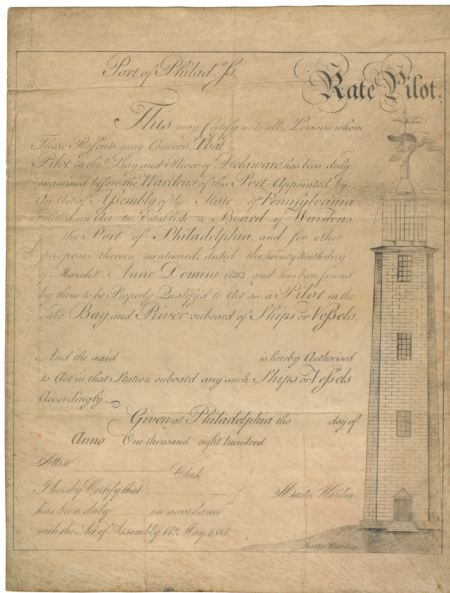 Port of Philad.ª ss.
Rate Pilot.
This may Certify unto all Persons whom
These Presents may Concern, That
Pilot in the Bay and River of Delaware has been duly
examined before the Wardens of this Port Appointed by
An Act of Assembly of the State of Pennsylvania
Entitled an Act to Establish a Board of Wardens
for the Port of Philadelphia, and for other
purposes therein mentioned; dated the Twenty Ninth day
of March Anno Domini 1803, and has been found
by them to be Properly Qualify'd to Act as a Pilot in the
said Bay and River onboard of Ships or Vessels.
And the said is hereby Authorised
to Act in that Station onboard any such Ships or Vessels
Accordingly
Given at Philadelphia the day of
Anno One thousand eight hundred
Attest
Clerk
I hereby Certify that Master Warden
has been duly in accordance
with the Act of Assembly May
Master Warden